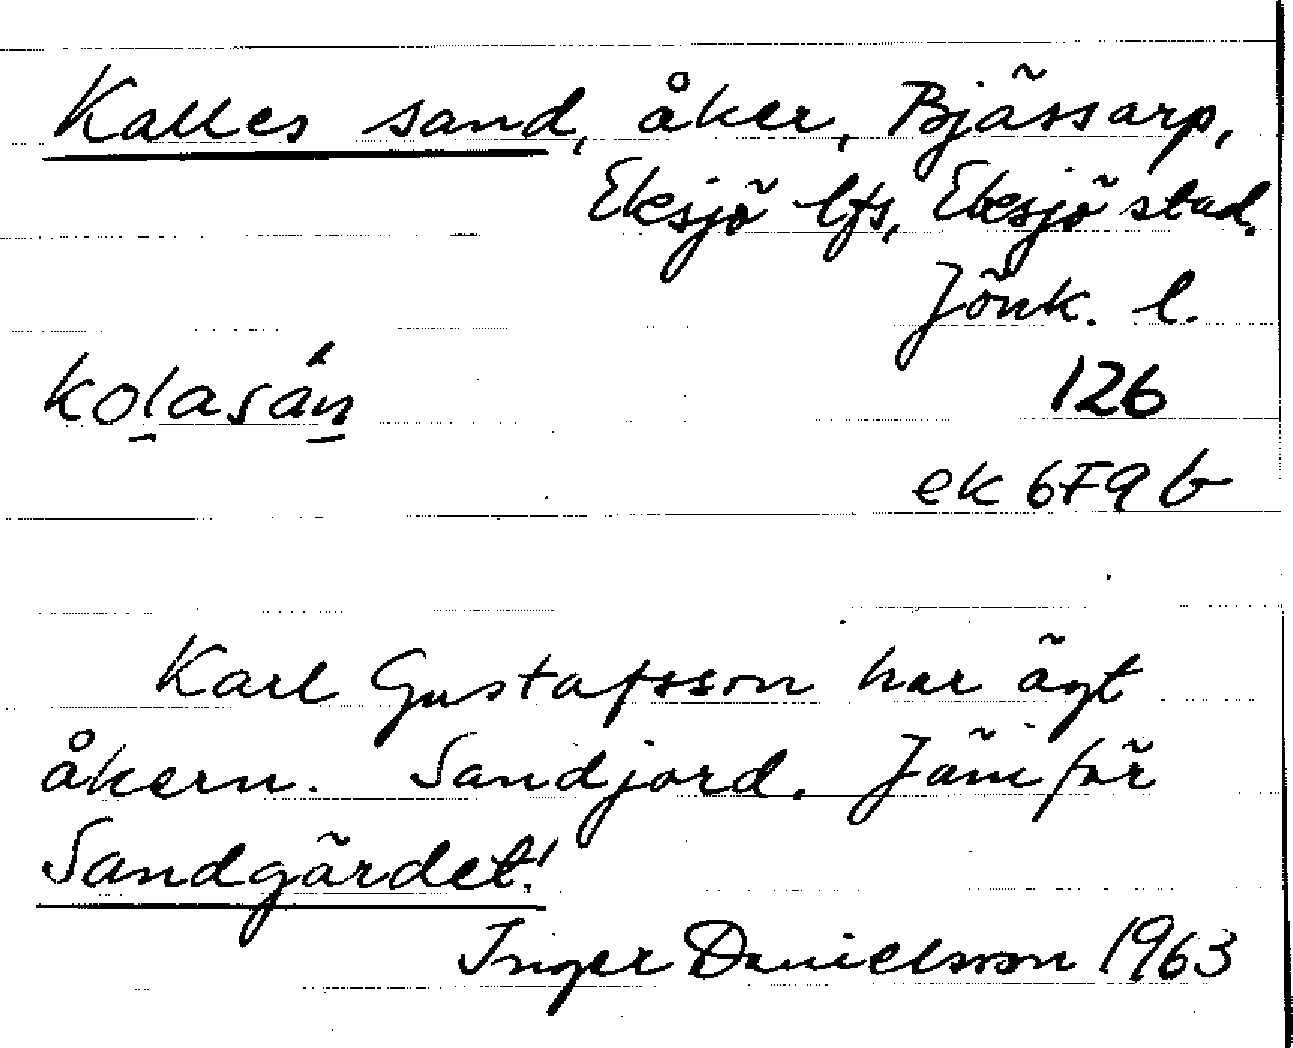 Kalles sand, åker, Bjässarp,
Eksjö lfs, Eksjö stad.
Jönk. l.
kolasán
126
ek 6F9b
Karl Gustafsson har ägt
åkern. Sandjord. Jämför
Sandgärdet!
Inger Danielsson 1963